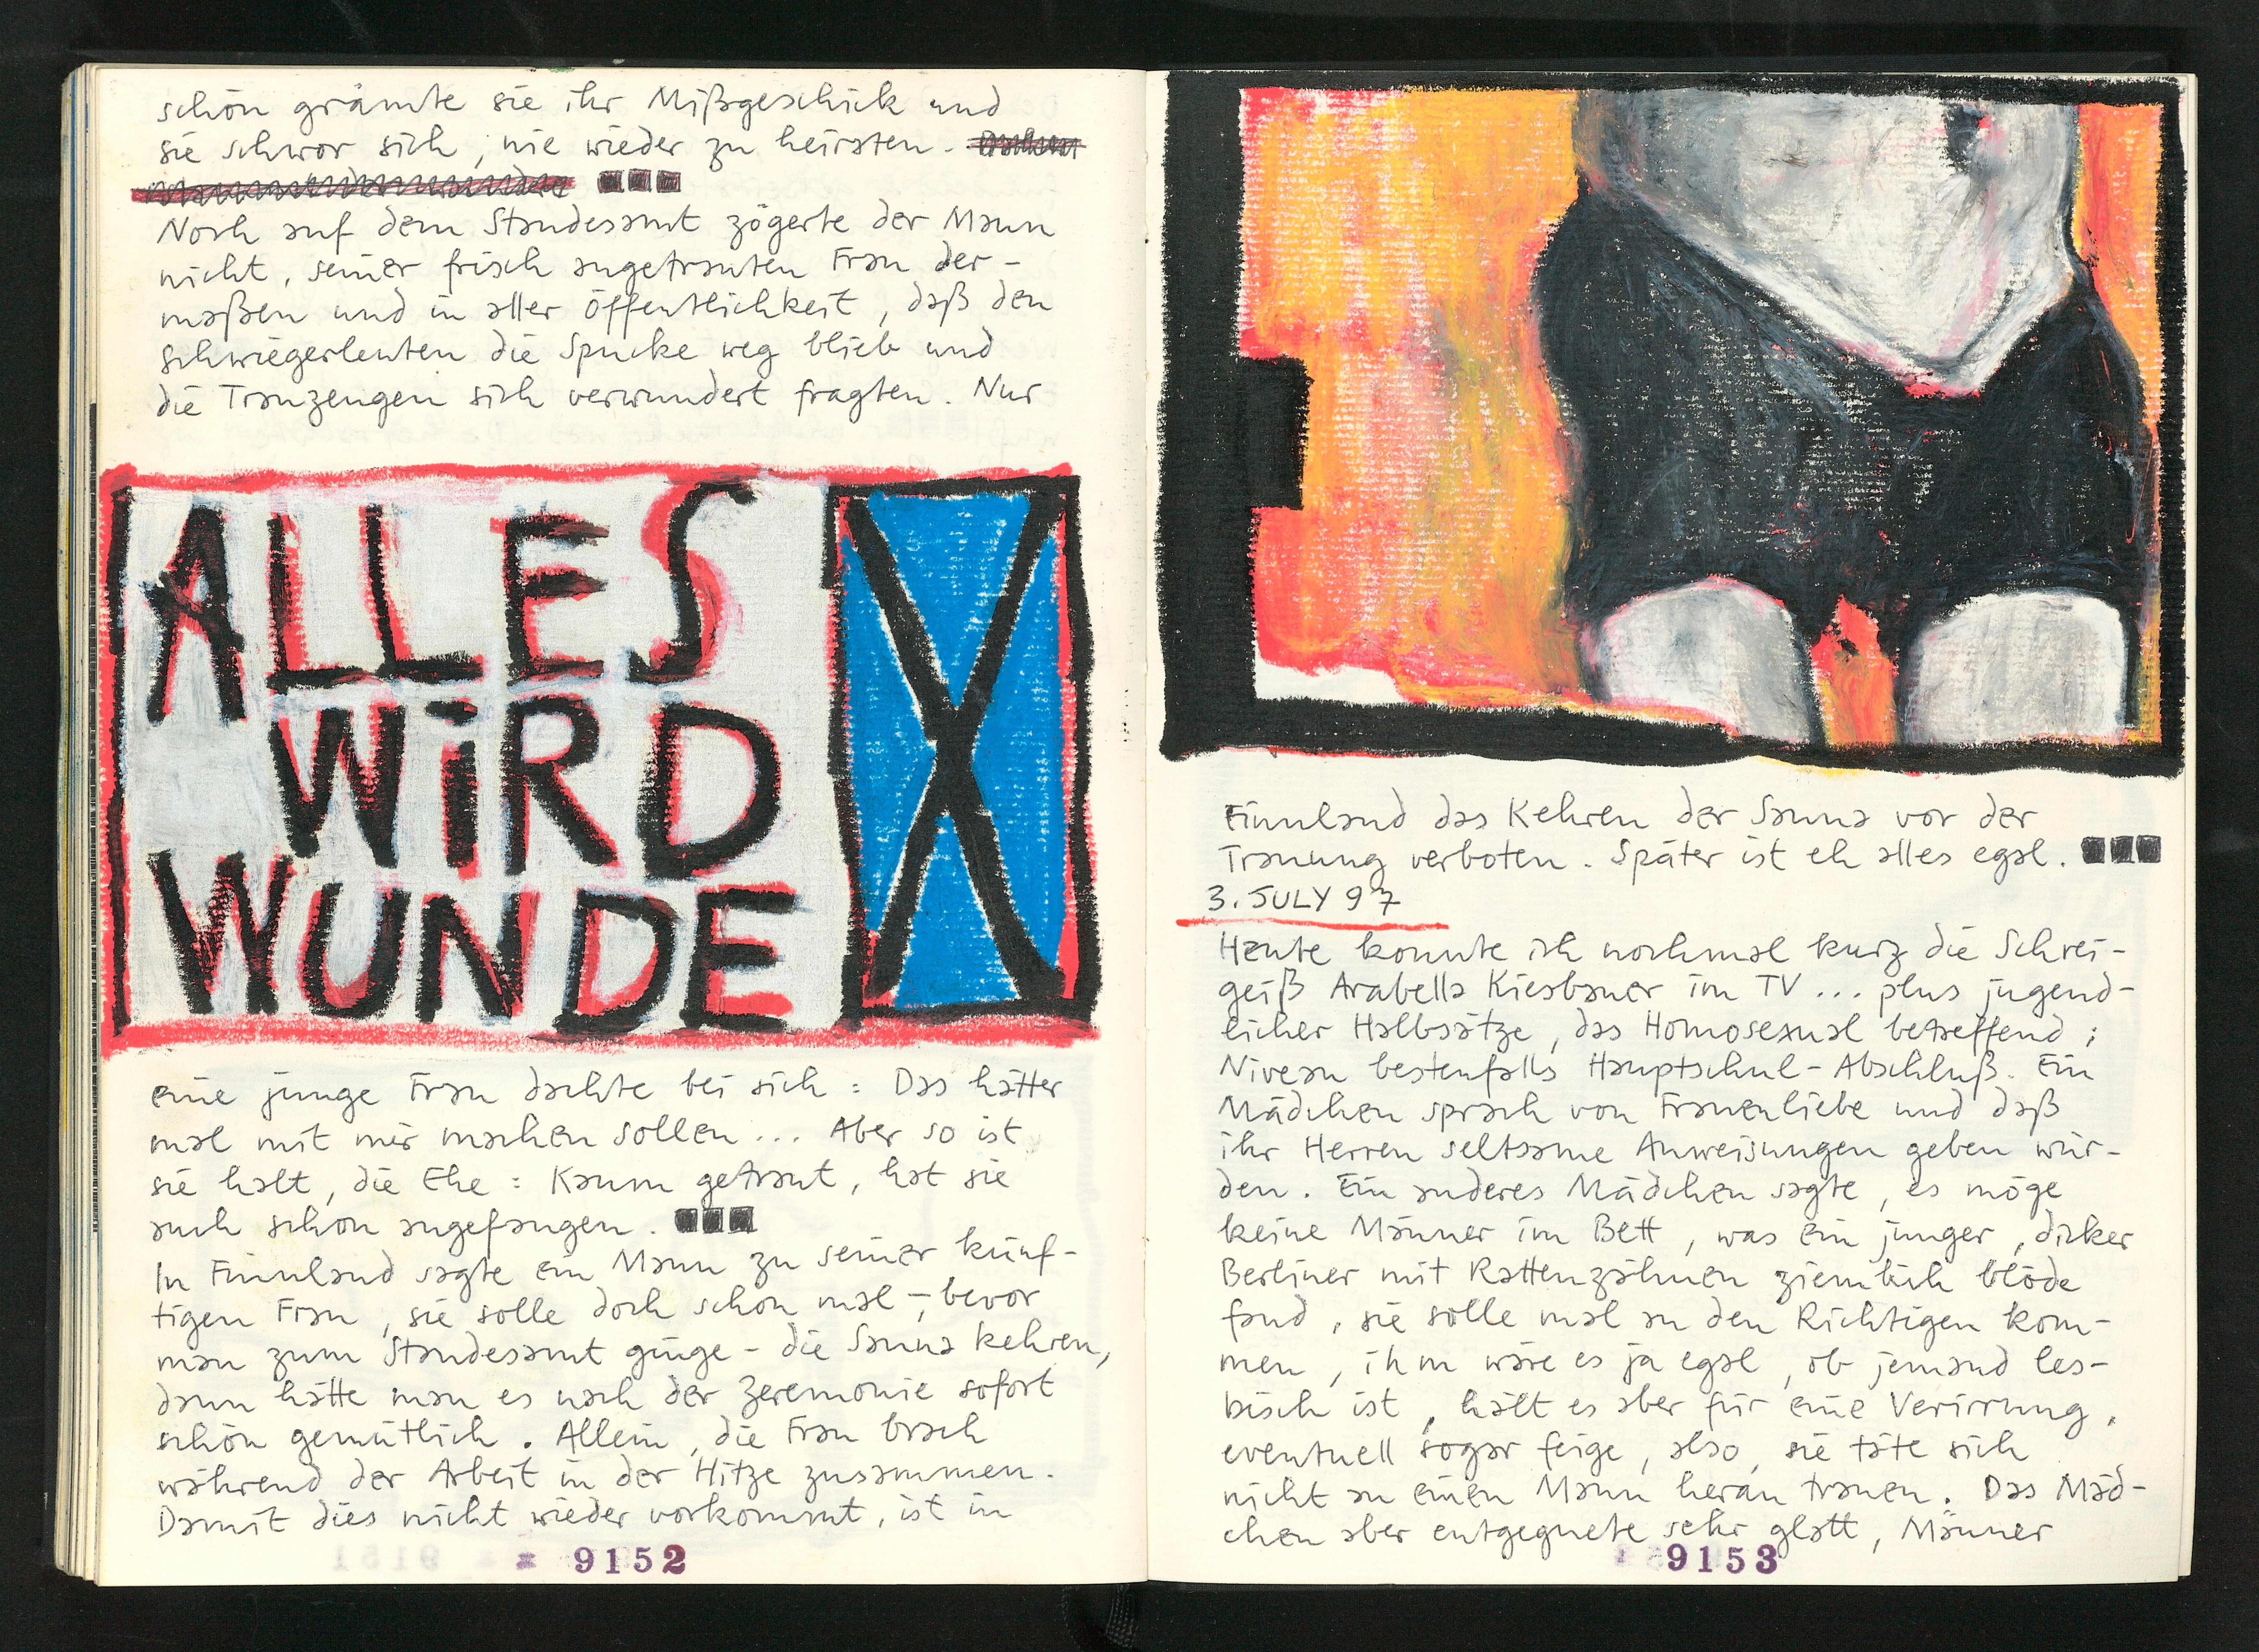 schön grämte sie ihr Mißgeschick und
sie schwor sich, nie wieder zu heirsten.
Noch auf dem Standesamt zögerte der Mann
nicht, seiner frisch angetrauten Frau der-
maßen und in aller öffentlichkeit, daß den
Schwiegerleuten die Spucke weg blieb und
die Trauzeugen sich verwundert fragten. Nur
ALLES
WiRD
WUNDE
X
eine junge Frau dachte bei sich: Das hätter
mal mit mir machen sollen... Aber so ist
sie halt, die Ehe: Kaum getraut, hat sie
auch schon angefangen.
In Finnland sagte ein Mann zu seiner künf-
tigen Frau, sie solle doch schon mal -, bevor
man zum Standesamt ginge - die Sauna kehren,
dann hätte man es nach der Zeremonie sofort
schön gemütlich. Allein, die Frau brach
während der Arbeit in der Hitze zusammen.
Damit dies nicht wieder vorkommt, ist in
9152
Finnland das Kehren der Sauna vor der
Trauung verboten. Später ist eh alles egal.
3. JULY 97
Heute konnte ich nochmal kurz die Schrei-
geiß Arabella Kiesbauer im TV... plus jugend-
licher Halbsätze, das Homosexual betreffend;
Niveau bestenfalls Hauptschul-Abschluß. Ein
Mädchen sprach von Frauenliebe und daß
ihr Herren seltsame Anweisungen geben wür-
den. Ein anderes Mädchen sagte, es möge
keine Männer im Bett, was ein junger, dicker
Berliner mit Rattenzähnen ziemlich blöde
fand, sie solle mal an den Richtigen kom-
men, ihm wäre es ja egal, ob jemand les-
bisch ist, hält es aber für eine Verirrung,
eventuell sogar feige, also, sie täte sich
nicht an einen Mann heran trauen. Das Mäd-
chen aber entgegnete sehr glatt, Männer
9153